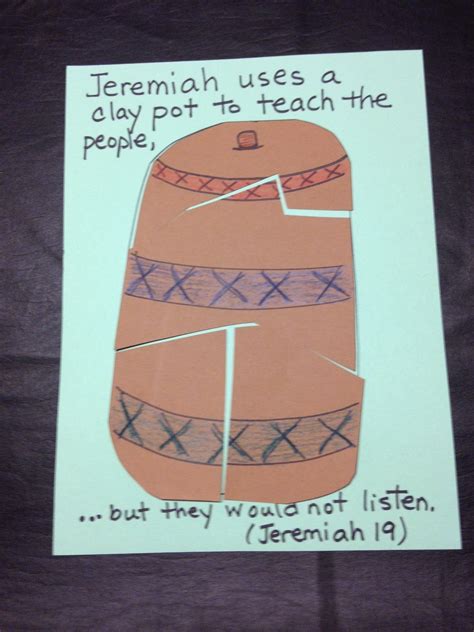 Jeremiah uses a
clay pot to teach the
people,
... but they would not listen.
(Jeremiah 19)